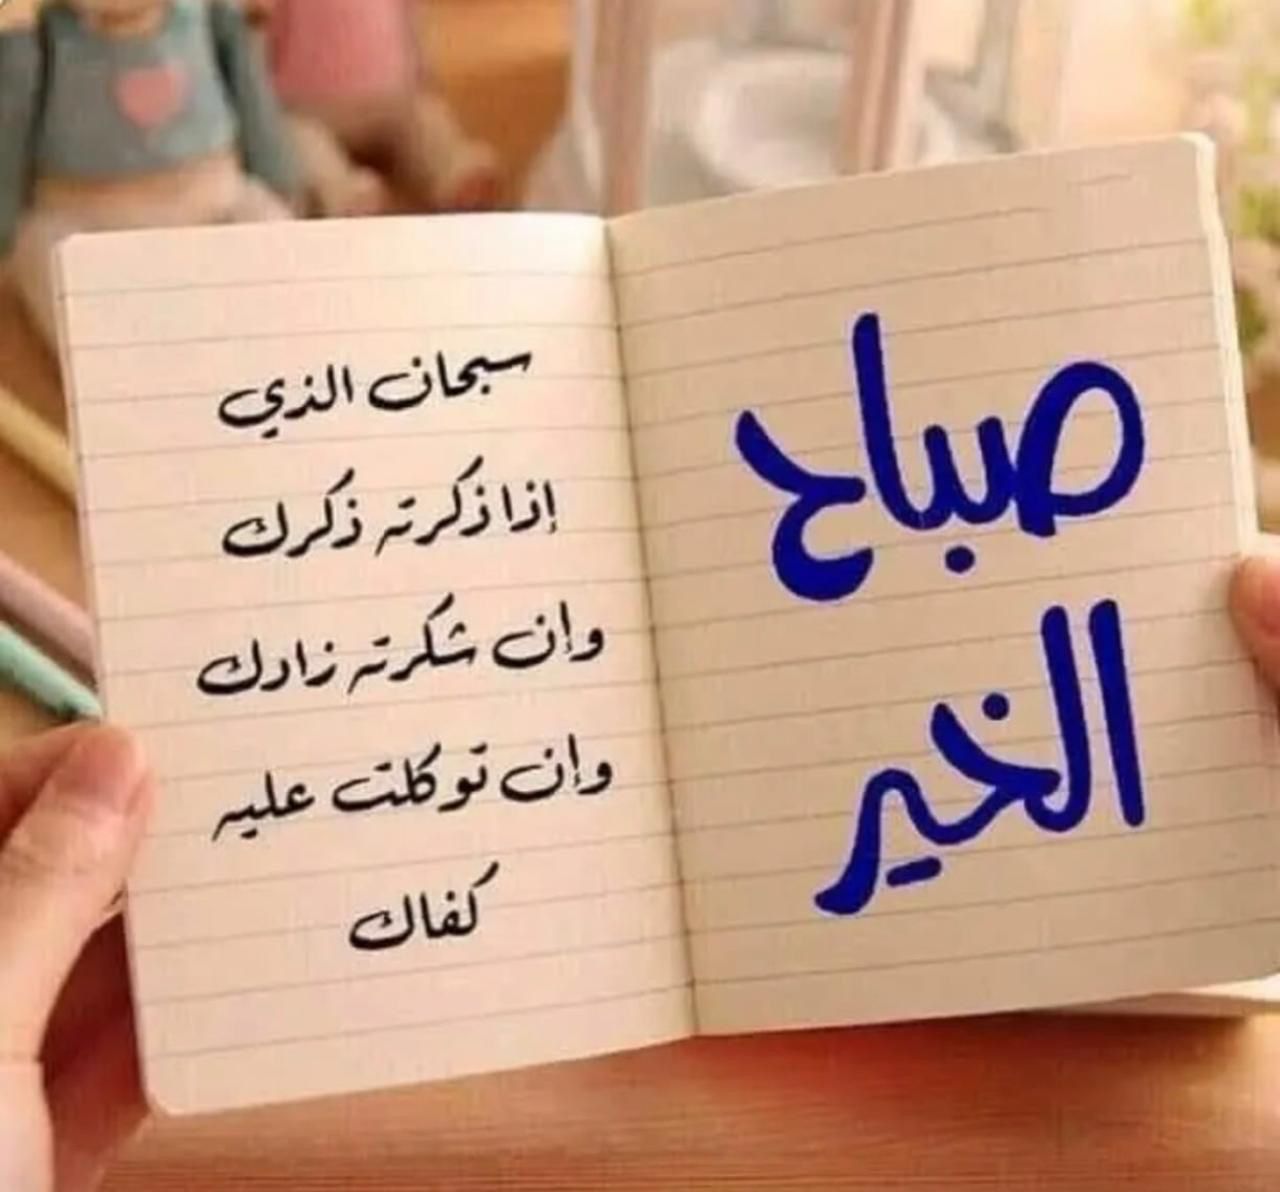 صباح
الخير
سبحان الذي
إذا ذكرته ذكرك
وإن شكرته زادك
وإن توكلت عليه
كفاك